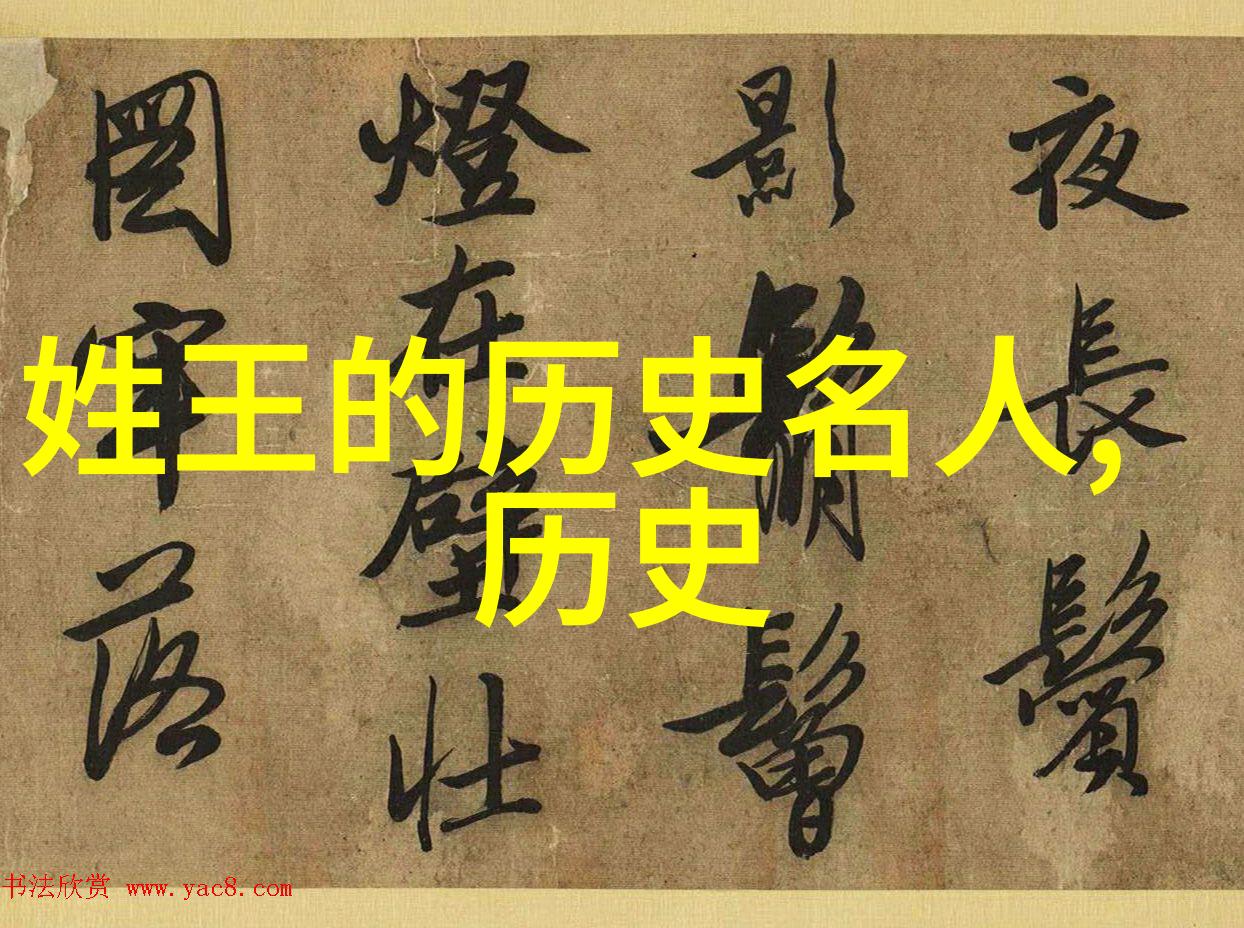 夜長鬢
影鬅鬙
燈在壁壯
圖牢落
姓王的历史名人,
历史
书法欣赏 www.yac8.com